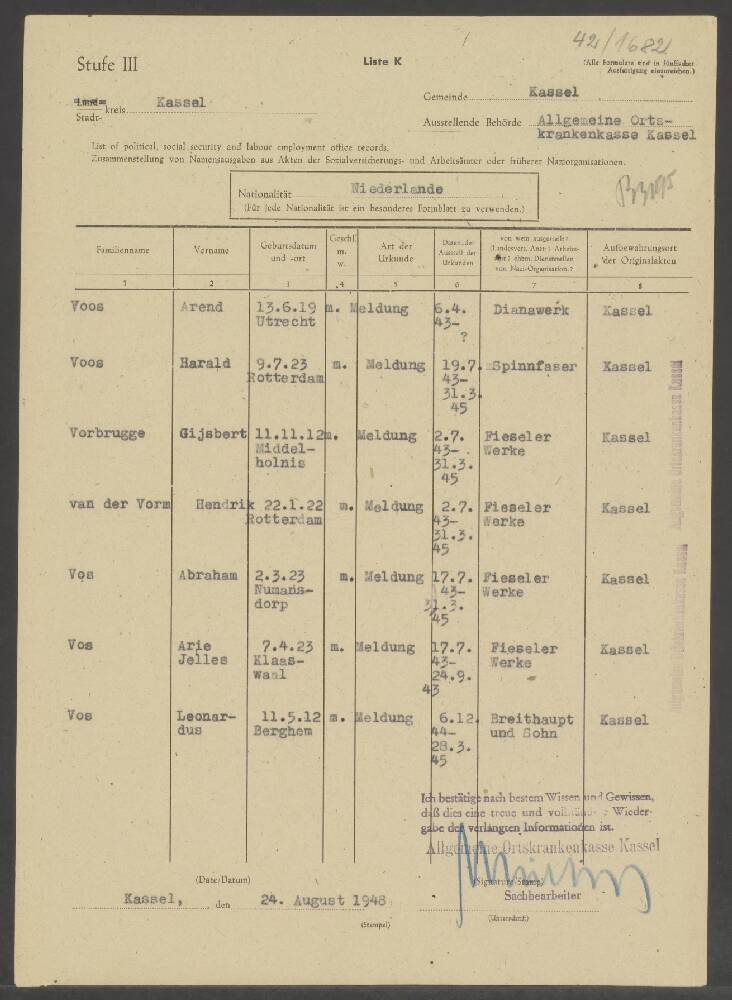 42/1682
Stufe III
Liste K
(Alle Formulare sind in 5facher
Ausfertigung einzureichen.)
Land-
Stadt-
kreis Kassel
Gemeinde Kassel
Ausstellende Behörde Allgemeine Orts-
krankenkasse Kassel
List of political, social security and labour employment office records.
Zusammenstellung von Namensausgaben aus Akten der Sozialversicherungs- und Arbeitsämter oder früherer Naziorganisationen.
Nationalität Niederlande
(Für jede Nationalität ist ein besonderes Formblatt zu verwenden.)
Familienname Vorname Geburtsdatum und -ort Geschl. m. w. Art der Urkunde Daten der Ausstell. der Urkunden von wem ausgestellt? (Landesvers. Amt? Arbeitsamt? ehem. Dienststellen von Nazi-Organisation.? Aufbewahrungsort der Originalakten
1 2 3 4 5 6 7 8
Voos Arend 13.6.19 m. Meldung 6.4. Dianawerk Kassel
Utrecht 43-
?
Voos Harald 9.7.23 m. Meldung 19.7. Spinnfaser Kassel
Rotterdam 43-
31.3.
45
Vorbrugge Gijsbert 11.11.12 m. Meldung 2.7. Fieseler Kassel
Middel- 43- Werke
holnis 31.3.
45
van der Vorm Hendrik 22.1.22 m. Meldung 2.7. Fieseler Kassel
Rotterdam 43- Werke
31.3.
45
Vos Abraham 2.3.23 m. Meldung 17.7. Fieseler Kassel
Numans- 43- Werke
dorp 31.3.
45
Vos Arie 7.4.23 m. Meldung 17.7. Fieseler Kassel
Jelles Klaas- 43- Werke
waal 24.9.
43
Vos Leonar- 11.5.12 m. Meldung 6.12. Breithaupt Kassel
dus Berghem 44- und Sohn
28.3.
45
Ich bestätige nach bestem Wissen und Gewissen,
daß dies eine treue und vollständige Wieder-
gabe der verlangten Informationen ist.
Allgemeine Ortskrankenkasse Kassel
(Date/Datum)
(Signature Stamp)
Sachbearbeiter
Kassel, den 24. August 1948
(Stempel)
(Unterschrift)
Allgemeine Ortskrankenkasse Kassel
Allgemeine Ortskrankenkasse Kassel